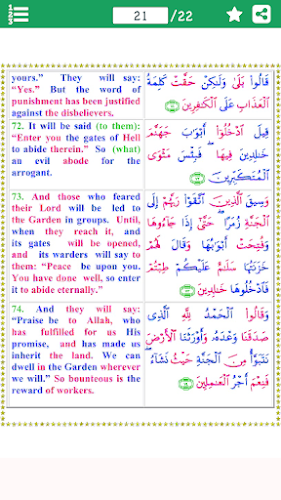 21 /22
yours." They will say:
"Yes." But the word of
punishment has been justified
against the disbelievers.
قَالُوا۟ بَلَىٰ وَلَـٰكِنْ حَقَّتْ كَلِمَةُ
ٱلْعَذَابِ عَلَى ٱلْكَـٰفِرِينَ
72. It will be said (to them):
"Enter you the gates of Hell
to abide therein." So (what)
an evil abode for the
arrogant.
قِيلَ ٱدْخُلُوٓا۟ أَبْوَٰبَ جَهَنَّمَ
خَـٰلِدِينَ فِيهَا ۖ فَبِئْسَ مَثْوَى
ٱلْمُتَكَبِّرِينَ
73. And those who feared
their Lord will be led to
the Garden in groups. Until,
when they reach it, and
its gates will be opened,
and its warders will say to
them: "Peace be upon you.
You have done well, so enter
it to abide eternally."
وَسِيقَ ٱلَّذِينَ ٱتَّقَوْا۟ رَبَّهُمْ إِلَى
ٱلْجَنَّةِ زُمَرًا ۖ حَتَّىٰٓ إِذَا جَآءُوهَا
وَفُتِحَتْ أَبْوَٰبُهَا وَقَالَ لَهُمْ
خَزَنَتُهَا سَلَـٰمٌ عَلَيْكُمْ طِبْتُمْ
فَٱدْخُلُوهَا خَـٰلِدِينَ
74. And they will say:
"Praise be to Allah, who
has fulfilled for us His
promise, and has made us
inherit the land. We can
dwell in the Garden wherever
we will." So bounteous is the
reward of workers.
وَقَالُوا۟ ٱلْحَمْدُ لِلَّهِ ٱلَّذِى
صَدَقَنَا وَعْدَهُۥ وَأَوْرَثَنَا ٱلْأَرْضَ
نَتَبَوَّأُ مِنَ ٱلْجَنَّةِ حَيْثُ نَشَآءُ ۖ
فَنِعْمَ أَجْرُ ٱلْعَـٰمِلِينَ